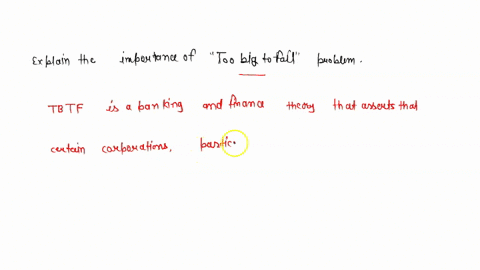 Explain the importance of "Too big to fail" problem.
TBTF is a banking and finance theory that asserts that
certain corporations, partic